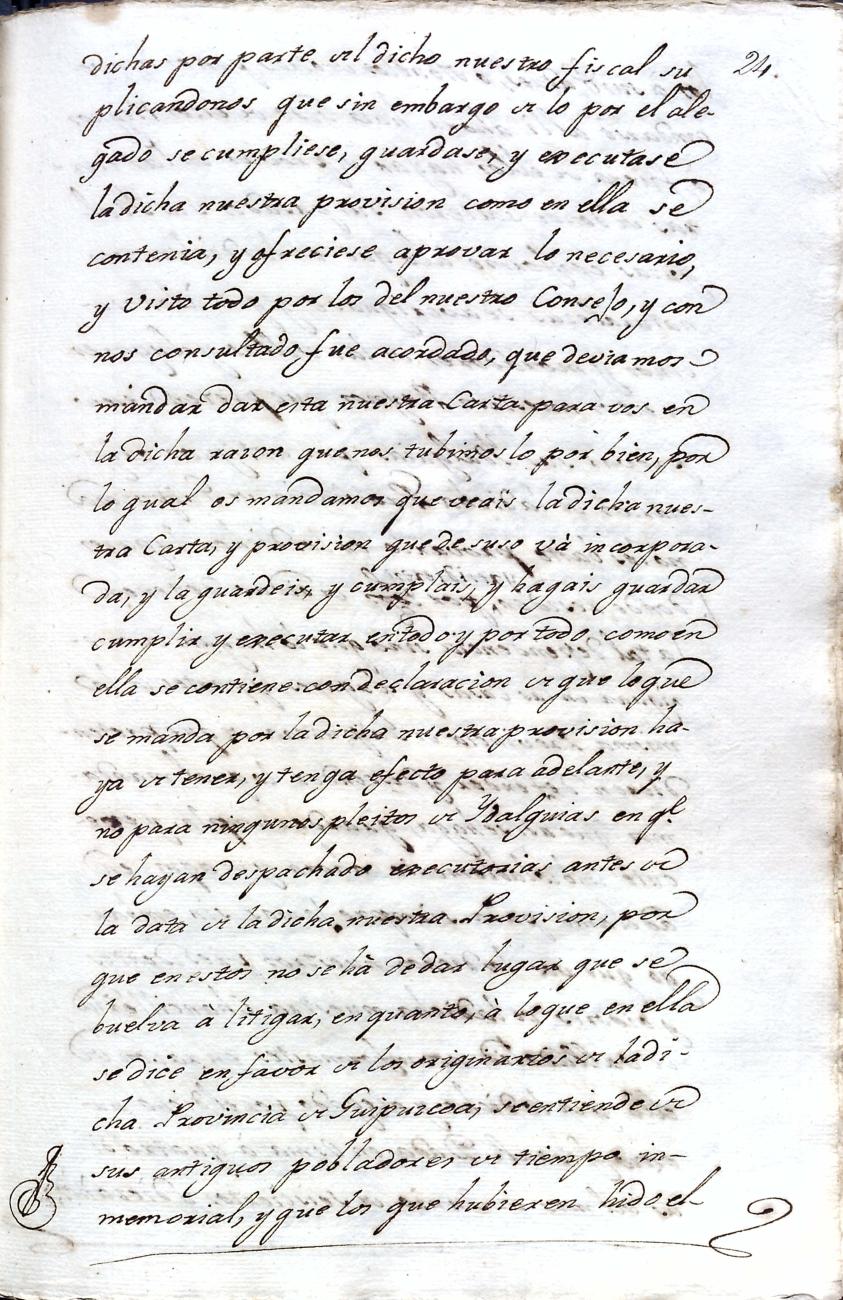 24.
dichas por parte del dicho nuestro fiscal su
plicandonos que sin embargo de lo por el ale-
gado se cumpliese, guardase, y executase
la dicha nuestra provision como en ella se
contenia, y ofreciese aprovar lo necesario,
y visto todo por los del nuestro Consejo, y con
nos consultado fue acordado, que deviamos
mandar dar esta nuestra Carta para vos en
la dicha razon que nos tubimos lo por bien, por
lo qual os mandamos que veais la dicha nues-
tra Carta, y provision que de suso và incorpora-
da, y la guardeis, y cumplais, y hagais guardar
cumplir y executar en todo y por todo, como en
ella se contiene con declaracion de que lo que
se manda por la dicha nuestra provision ha-
ya de tener, y tenga efecto para adelante, y
no para ningunos pleitos de Ydalguias en qe
se hayan despachado executorias antes de
la data de la dicha nuestra Provision, por
que en estos no se hà de dar lugar que se
buelva à litigar, en quanto, à lo que en ella
se dice en favor de los originarios de la di-
cha Provincia de Guipuzcoa, se entiende de
sus antiguos pobladores de tiempo in-
memorial, y que los que hubieren hido el-